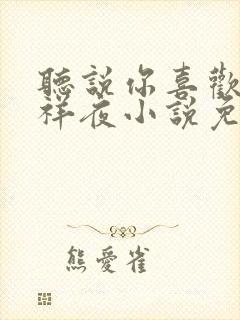 聽說你喜歡
祥夜小說免
熊愛雀